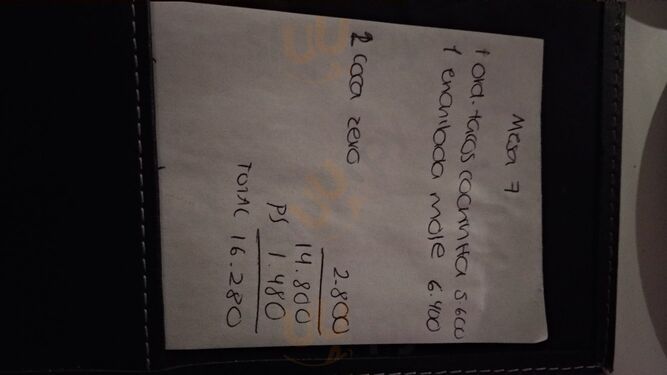 Mesa 7
1 ord. tacos cochinita 5.600
1 enchilada mole 6.400
2 coca zero 2.800
14.800
PS 1.480
TOTAL 16.280